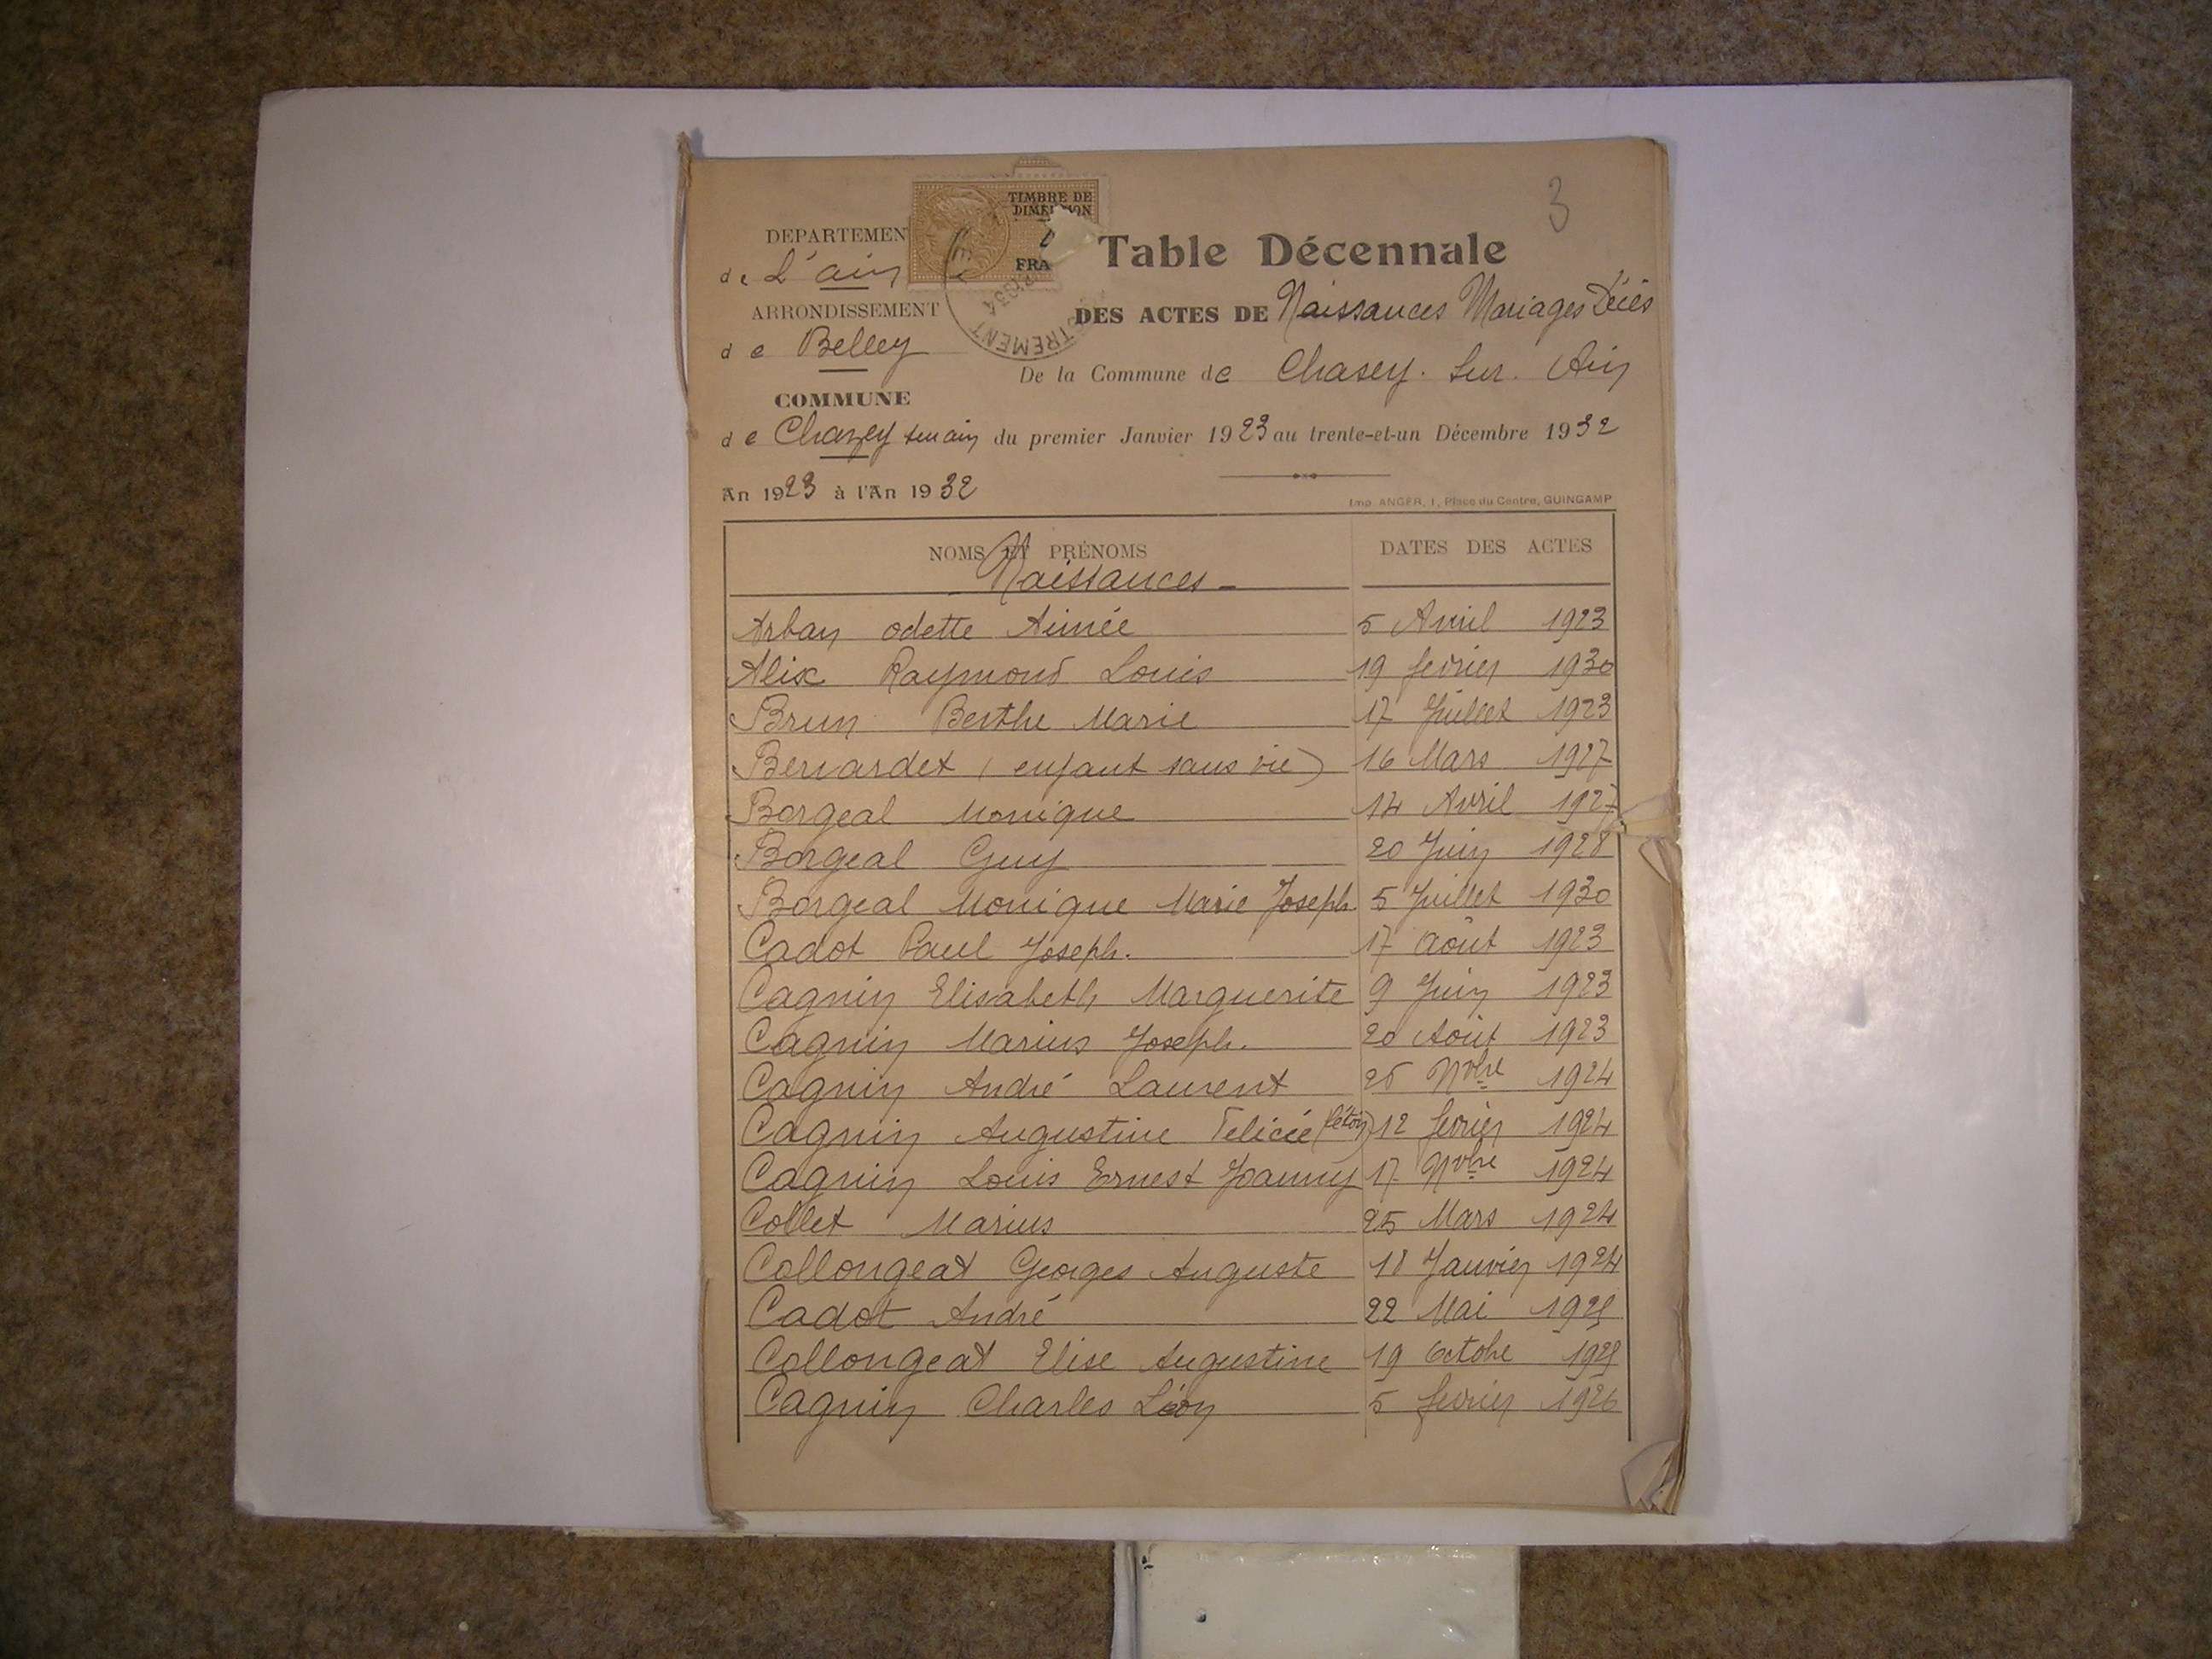 3
TIMBRE DE
DIMENSION
FRA
DEPARTEMEN
de L'ain
Table Décennale
ARRONDISSEMENT
DES ACTES DE Naissances Mariages Décès
de Belley
De la Commune de Chasey. Sur. Ain
COMMUNE
de Chazey sur ain du premier Janvier 1923 au trente-et-un Décembre 1932
An 1923 à l'An 1932
Imp. ANGER, 1, Place du Centre, GUINGAMP
NOMS ET PRÉNOMS DATES DES ACTES
Naissances
Arban odette Aimée 5 Avril 1923
Alix Raymond Louis 19 fevrier 1930
Brun Berthe Marie 17 Juillet 1923
Bernardet (enfant sans vie) 16 Mars 1927
Borgeal Monique 14 Avril 1927
Borgeal Guy 20 Juin 1928
Borgeal Monique Marie Joseph 5 Juillet 1930
Cadot Paul Joseph. 17 août 1923
Cagnin Elisabeth Marguerite 9 Juin 1923
Cagnin Marius Joseph. 20 Août 1923
Cagnin André Laurent Nbre 1924
Cagnin Augustine Felicie 12 fevrier 1924
Cagnin Louis Ernest Joanny 17 Nbre 1924
Collet Marius 25 Mars 1924
Collongeat Georges Auguste 18 Janvier 1924
Cadot André 22 Mai 1925
Collongeat Elise Augustine 19 Octobe 1925
Cagnin Charles Léon 5 fevrier 1926